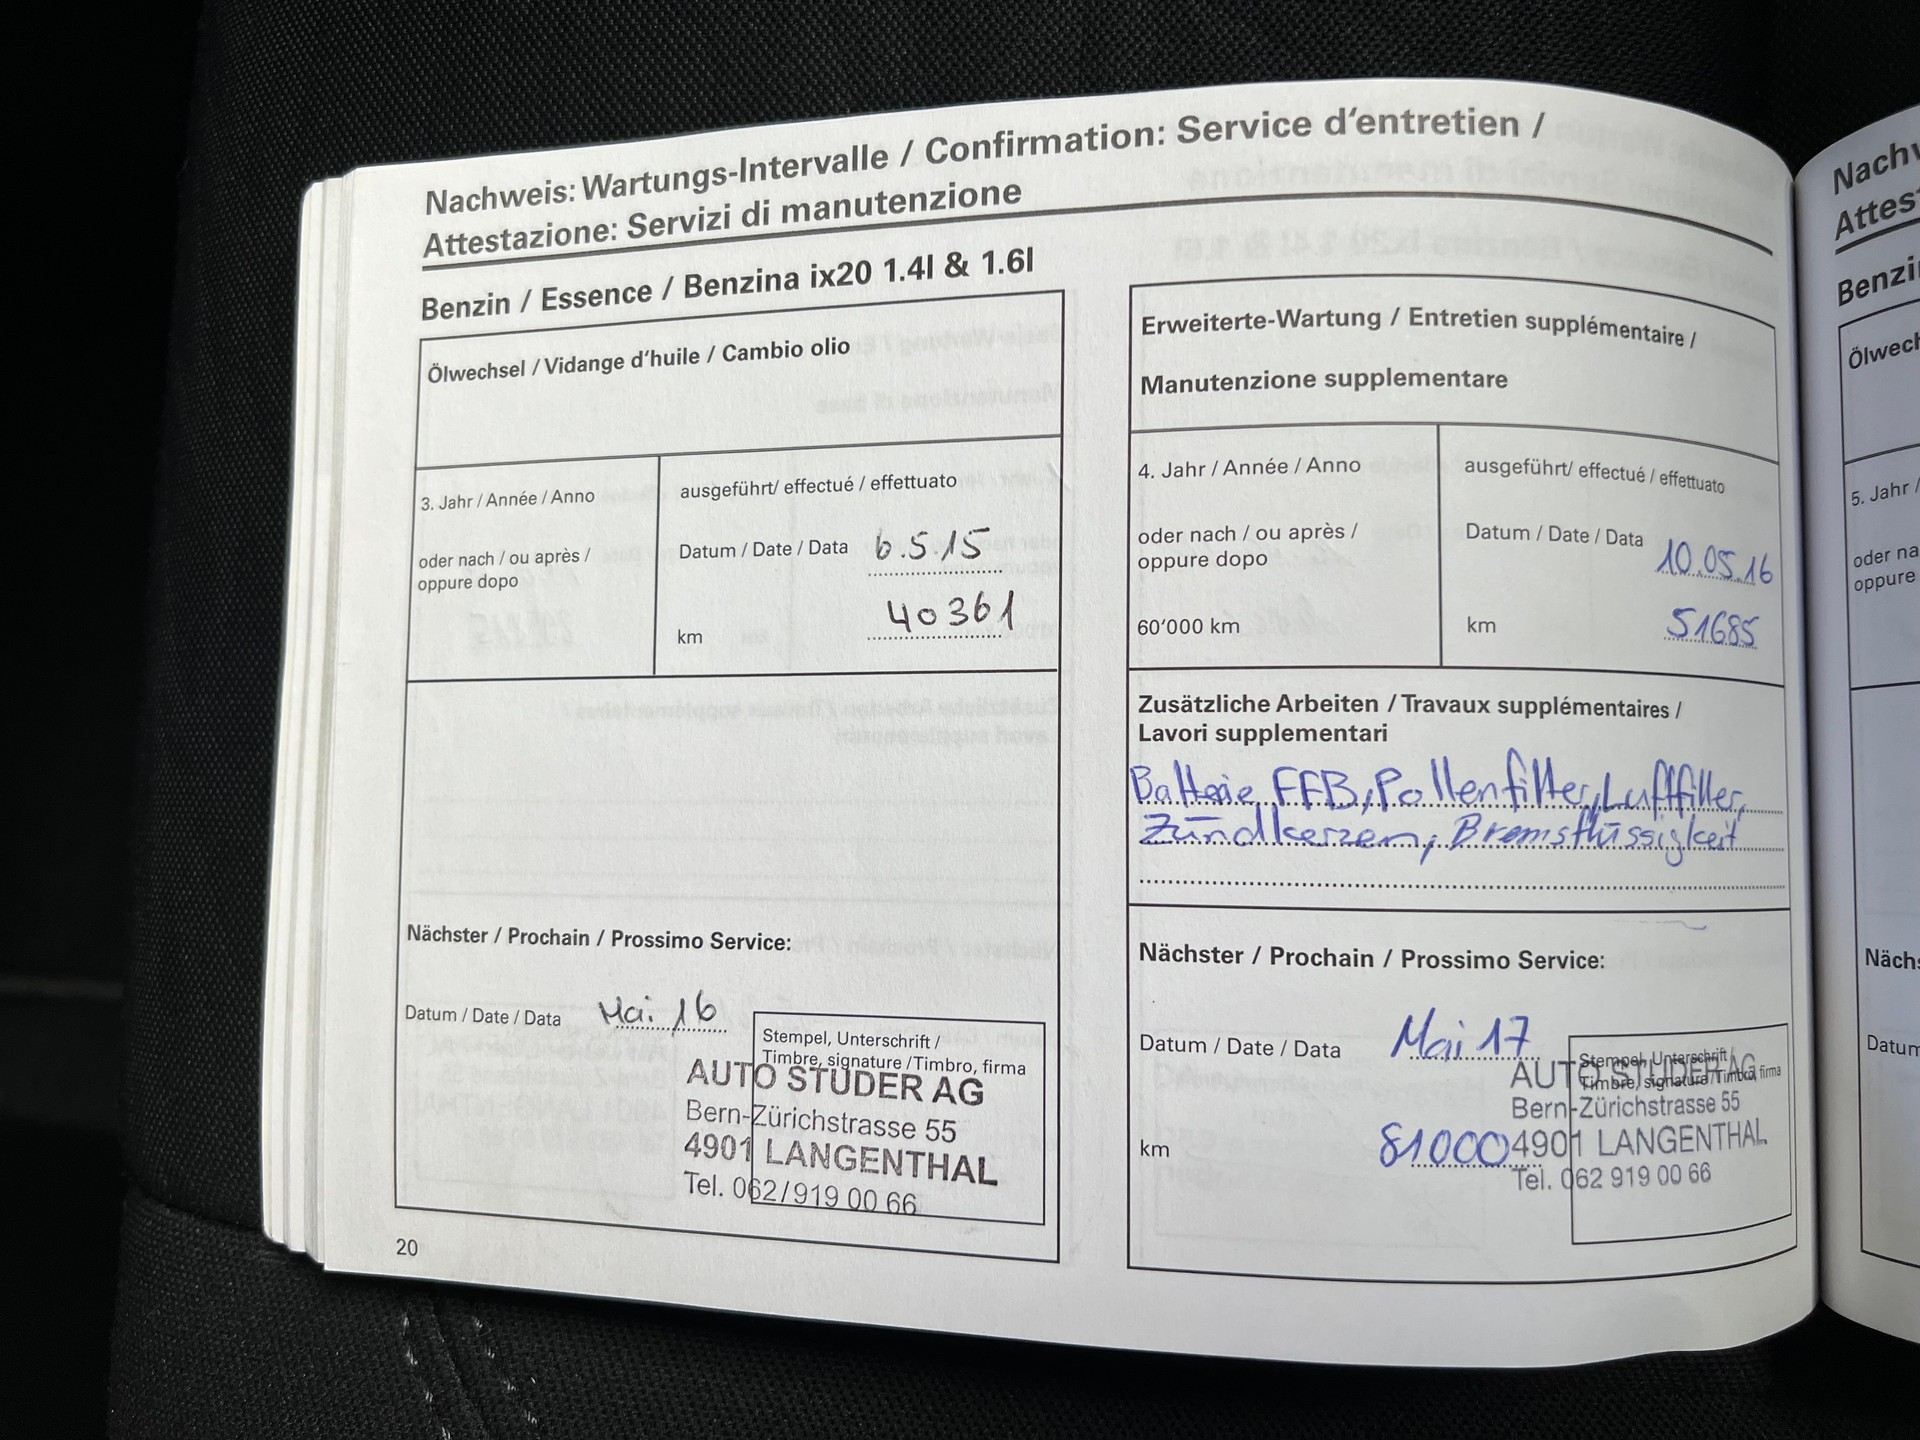 Nachweis: Wartungs-Intervalle / Confirmation: Service d'entretien /
Attestazione: Servizi di manutenzione
Benzin / Essence / Benzina ix20 1.4l & 1.6l
Ölwechsel / Vidange d'huile / Cambio olio
3. Jahr / Année / Anno
oder nach / ou après /
oppure dopo
ausgeführt/ effectué / effettuato
Datum / Date / Data 6.5.15
km 40361
Nächster / Prochain / Prossimo Service:
Datum / Date / Data Mai 16
Stempel, Unterschrift /
Timbre, signature / Timbro, firma
AUTO STUDER AG
Bern-Zürichstrasse 55
4901 LANGENTHAL
Tel. 062/919 00 66
20
Erweiterte-Wartung / Entretien supplémentaire /
Manutenzione supplementare
4. Jahr / Année / Anno
oder nach / ou après /
oppure dopo
60'000 km
ausgeführt/ effectué / effettuato
Datum / Date / Data 10.05.16
km 51685
Zusätzliche Arbeiten / Travaux supplémentaires /
Lavori supplementari
Batterie FFB, Pollenfilter, Luftfilter,
Zündkerzen, Bremsflüssigkeit
Nächster / Prochain / Prossimo Service:
Datum / Date / Data Mai 17
km 81000
Stempel, Unterschrift /
Timbre, signature / Timbro, firma
AUTO STUDER AG
Bern-Zürichstrasse 55
4901 LANGENTHAL
Tel. 062 919 00 66
Nachw
Attes
Benzin
Ölwech
5. Jahr /
oder na
oppure
Nächs
Datum